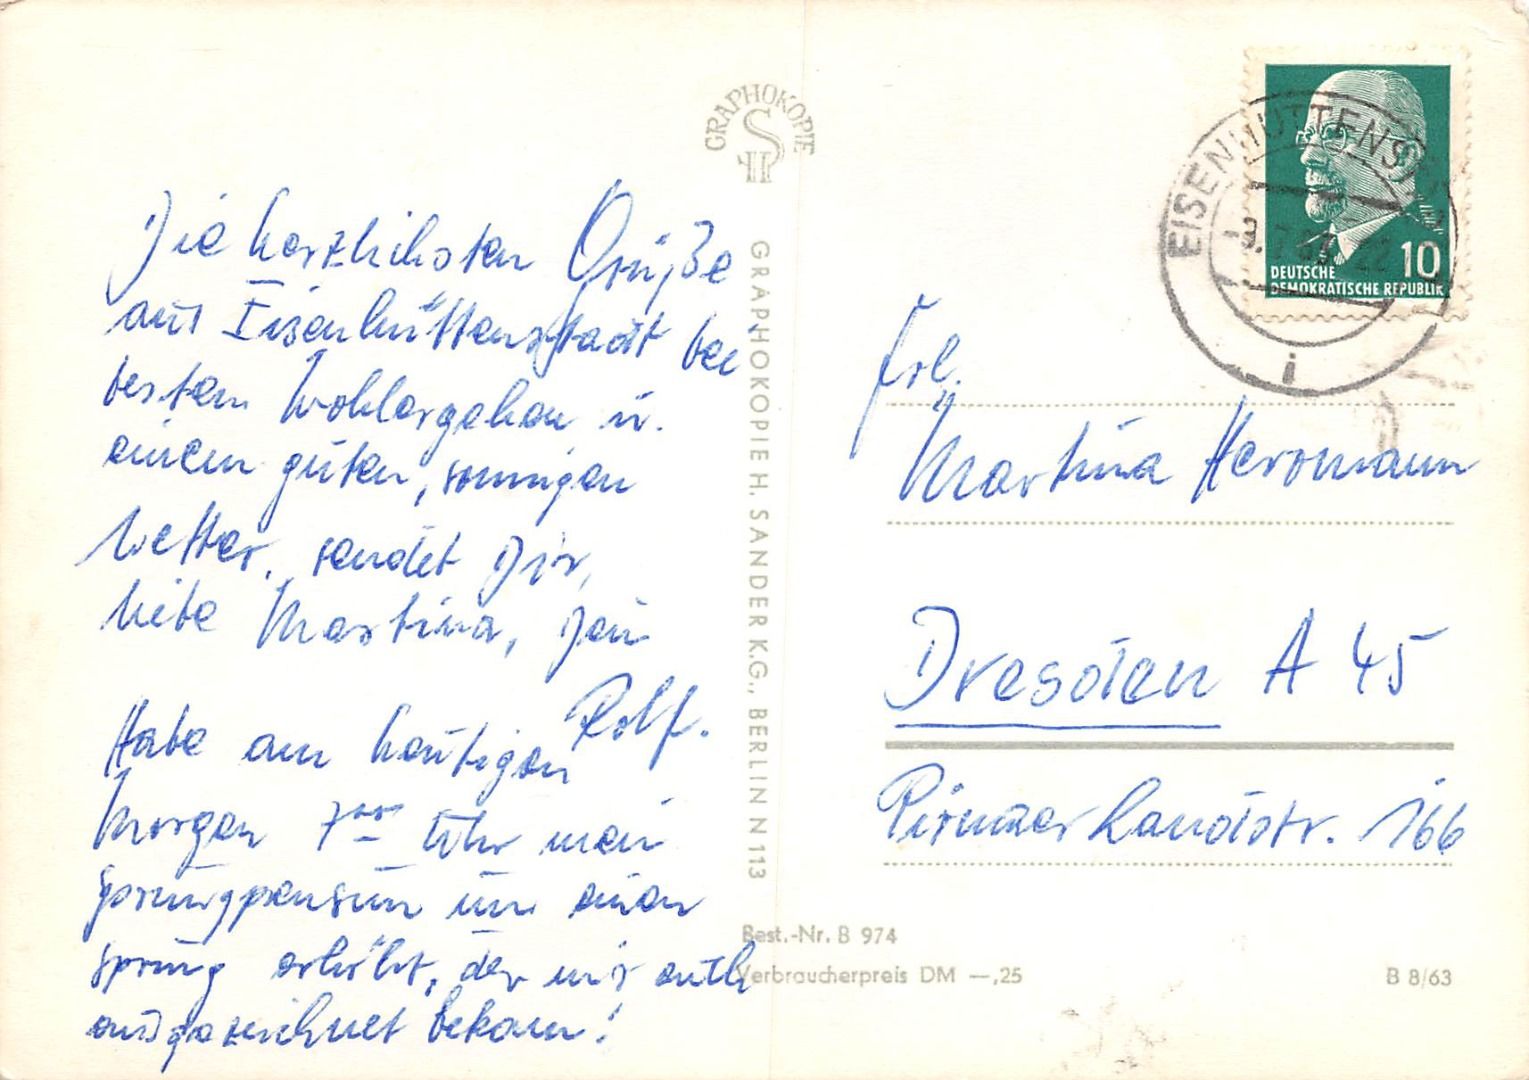 Die herzlichsten Grüße
aus Eisenhüttenstadt bei
bestem Wohlergehen u.
einem guten, sonnigen
Wetter, sendet Dir,
liebe Martina, Dein
Rolf.
Habe am heutigen
Morgen 7⁰⁰ Uhr mein
Sprungpensum um einen
Sprung erhöht, der mir auch
ausgezeichnet bekam!
GRAPHOKOPIE
H S
GRAPHOKOPIE H. SANDER K.G., BERLIN N 113
EISENHÜTTENSTADT
i
10
DEUTSCHE
DEMOKRATISCHE REPUBLIK
Frl.
Martina Herrmann
Dresden A 45
Pirnaer Landstr. 166
Best.-Nr. B 974
Verbraucherpreis DM —,25
B 8/63